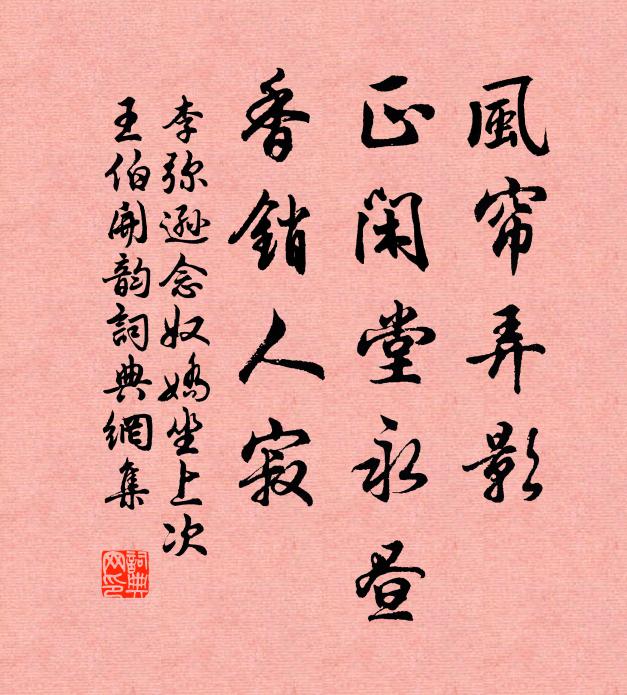 風帘弄影
正閑堂永昼
香銷人寂
李弥遜念奴嬌坐上次
王伯開韵詞典網集
詞典网印